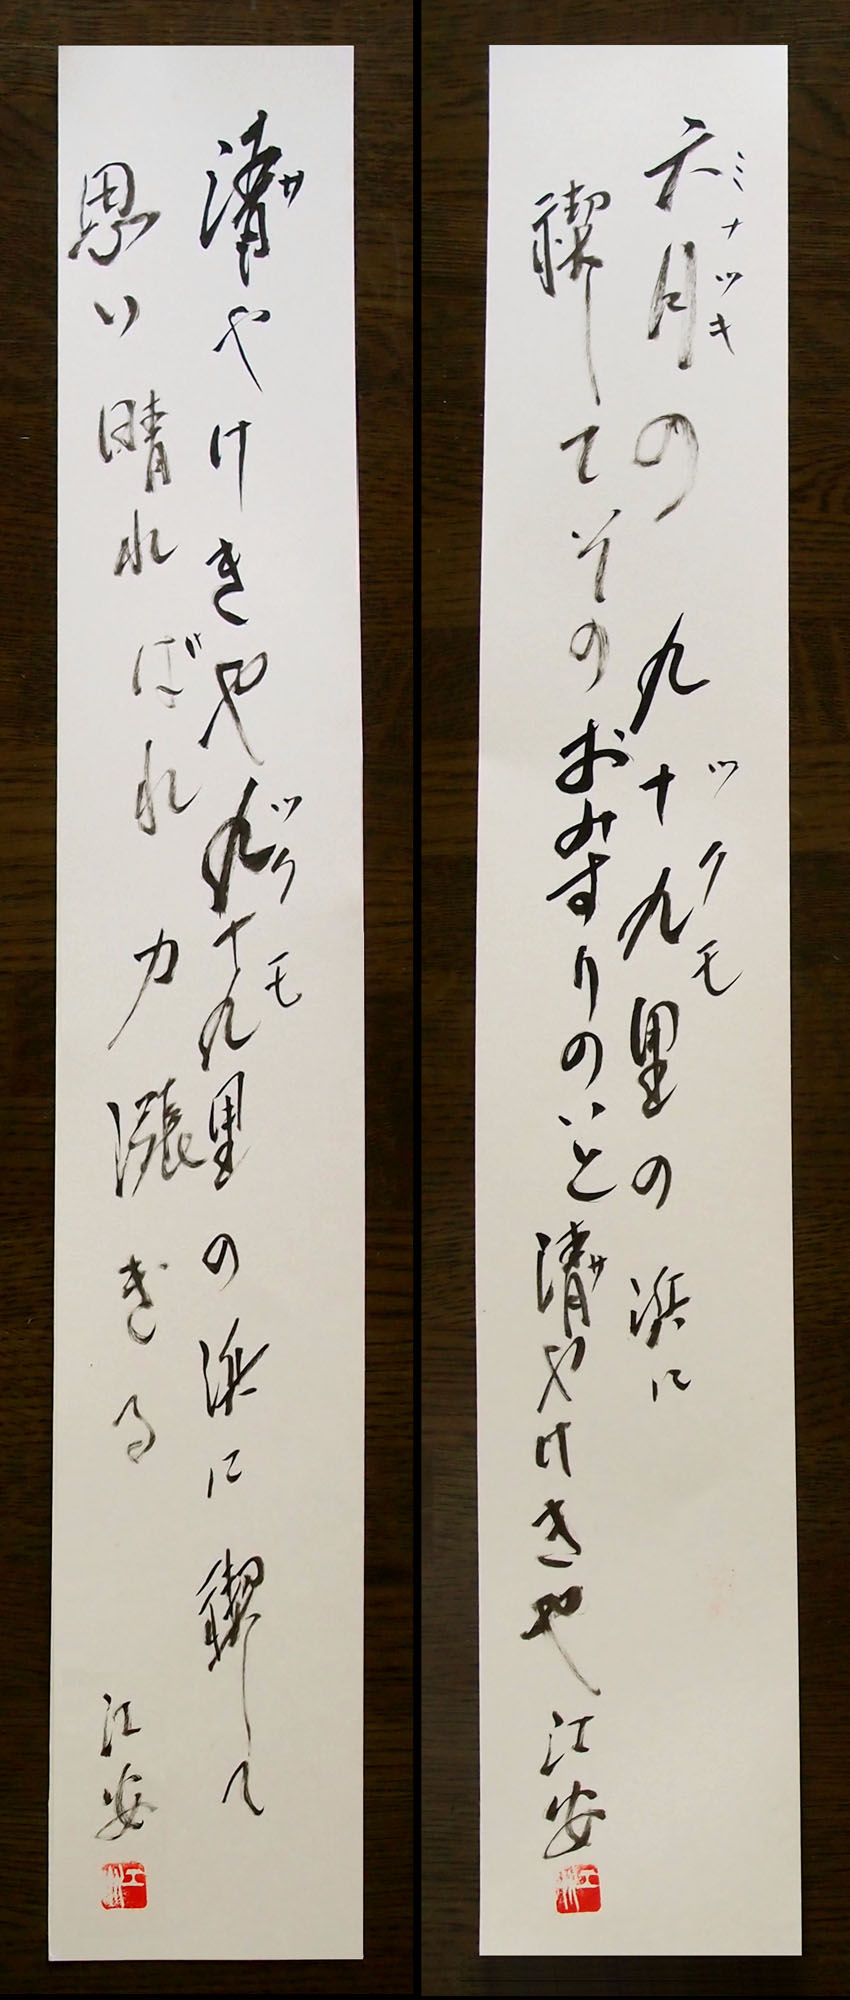 六月の九十九里の浜に
ミナツキ
ツクモ
禊してそのおみすりのいと清やけきや
サ
江安
清やけきや九十九里の浜に禊して
サ
ツクモ
思い晴ればれ力漲ぎる
江安